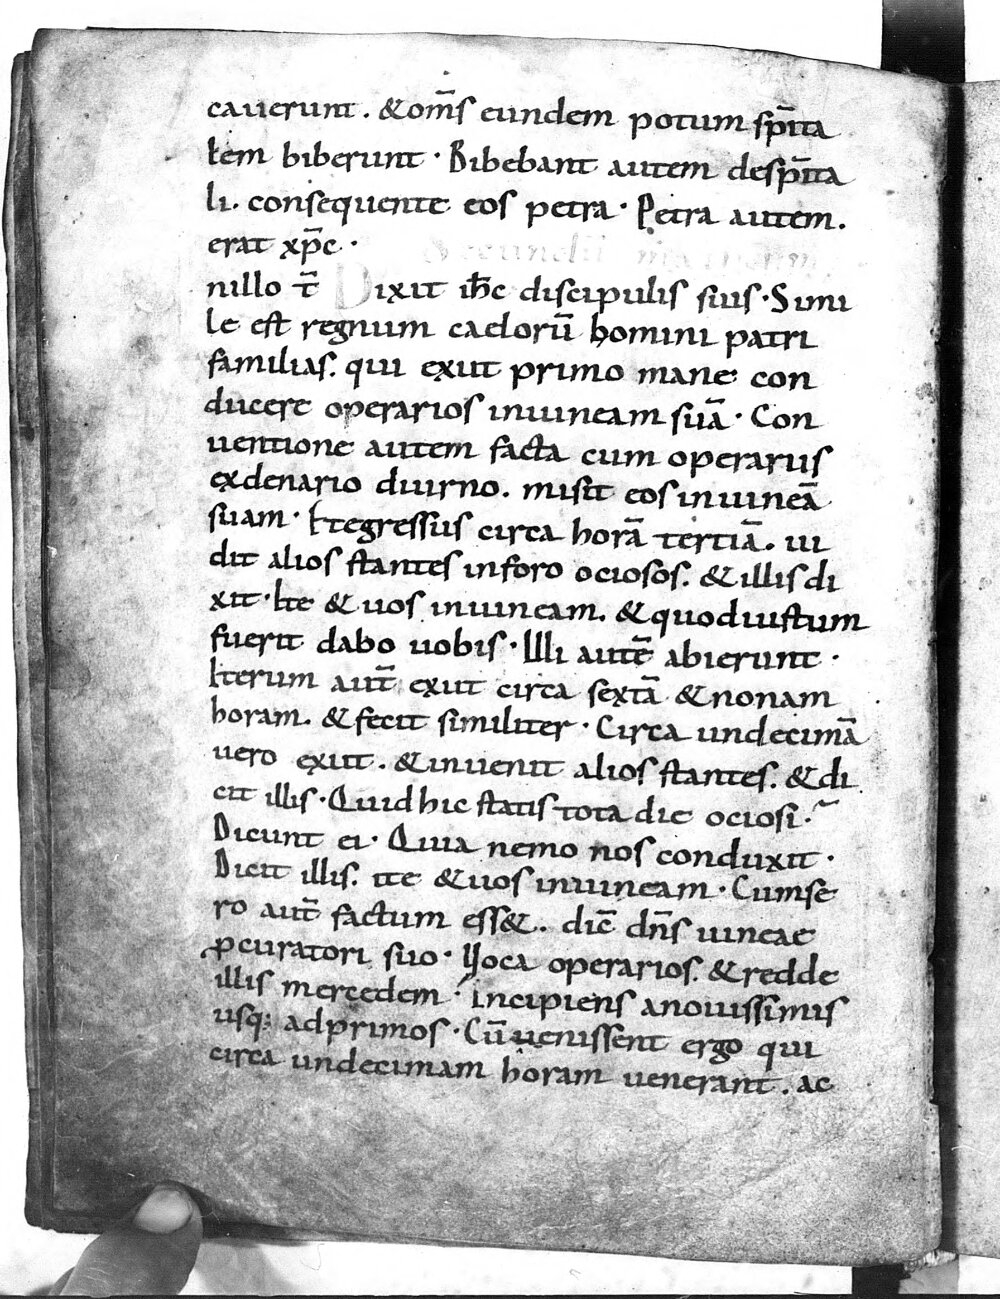 cauerunt . & om̄s eundem potum sp̄ita
lem biberunt · Bibebant autem desp̄ita
li . consequente eos petra · Petra autem .
erat xp̄c ·
Secundū
nillo t̄ Dixit ih̄c discipulis suis · Simi
le est regnum caeloru̅ homini patri
familias . qui exiit primo mane con
ducere operarios inuineam suā · Con
uentione autem facta cum operariis
exdenario diurno . misit eos inuineā
suam · Etegressus circa horā tertiā . ui
dit alios stantes inforo ociosos . & illis di
xit · Ite & uos inuineam . & quod iustum
fuerit dabo uobis · Illi autē abierunt ·
Iterum aut̄ exiit circa sextā & nonam
horam . & fecit similiter · Circa undecimā
uero exiit . & inuenit alios stantes . & di
cit illis · Quid hic statis tota die ociosi ·
Dicunt ei · Quia nemo nos conduxit ·
Dicit illis . ite & uos inuineam · Cumse
ro aut̄ factum ess& . dic̄ dn̄s uineae
ꝓcuratori suo · Uoca operarios . & redde
illis mercedem · Incipiens anouissimis
usq; adprimos · Cū uenissent ergo qui
circa undecimam horam uenerant . ac